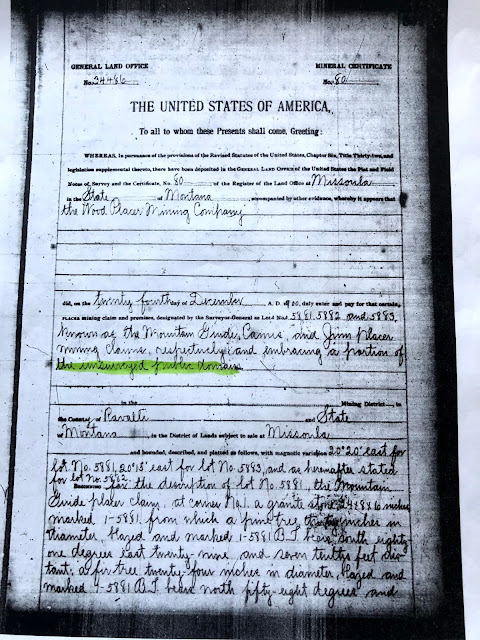 GENERAL LAND OFFICE
MINERAL CERTIFICATE
No. 34486
No. 80
THE UNITED STATES OF AMERICA,
To all to whom these Presents shall come, Greeting:
WHEREAS, In pursuance of the provisions of the Revised Statutes of the United States, Chapter Six, Title Thirty-two, and
legislation supplemental thereto, there have been deposited in the GENERAL LAND OFFICE of the United States the Plat and Field
Notes of Survey and the Certificate, No. 80 of the Register of the Land Office at Missoula
in the State of Montana, accompanied by other evidence, whereby it appears that
the Wood Placer Mining Company
did, on the twenty fourth day of December A. D. duly enter and pay for that certain
placer mining claim and premises, designated by the Surveyor-General as Lot No. 5881, 5882 and 5883,
known as the Mountain Guide, and Jim placer
mining claims, respectively, and embracing a portion of
the unsurveyed public domain
in the Mining District, in
the County of Ravalli and State
of Montana, in the District of Lands subject to sale at Missoula
and bounded, described, and platted as follows, with magnetic variation 20°20' east for
lot No. 5881, 20°15' east for lot No. 5883, and as hereafter stated
for lot No. 5882
BEGINNING for the description of lot No. 5881, the Mountain
Guide placer claim, at corner No. 1, a granite stone 24x8x6 inches
marked 1-5881, from which a pine tree inches in
diameter, blazed and marked 1-5881 B.T. bears south eighty-
one degrees east twenty-nine and seven tenths feet dis-
tant; a fir tree twenty-four inches in diameter, blazed and
marked 1-5881 B.T. bears north fifty-eight degrees and